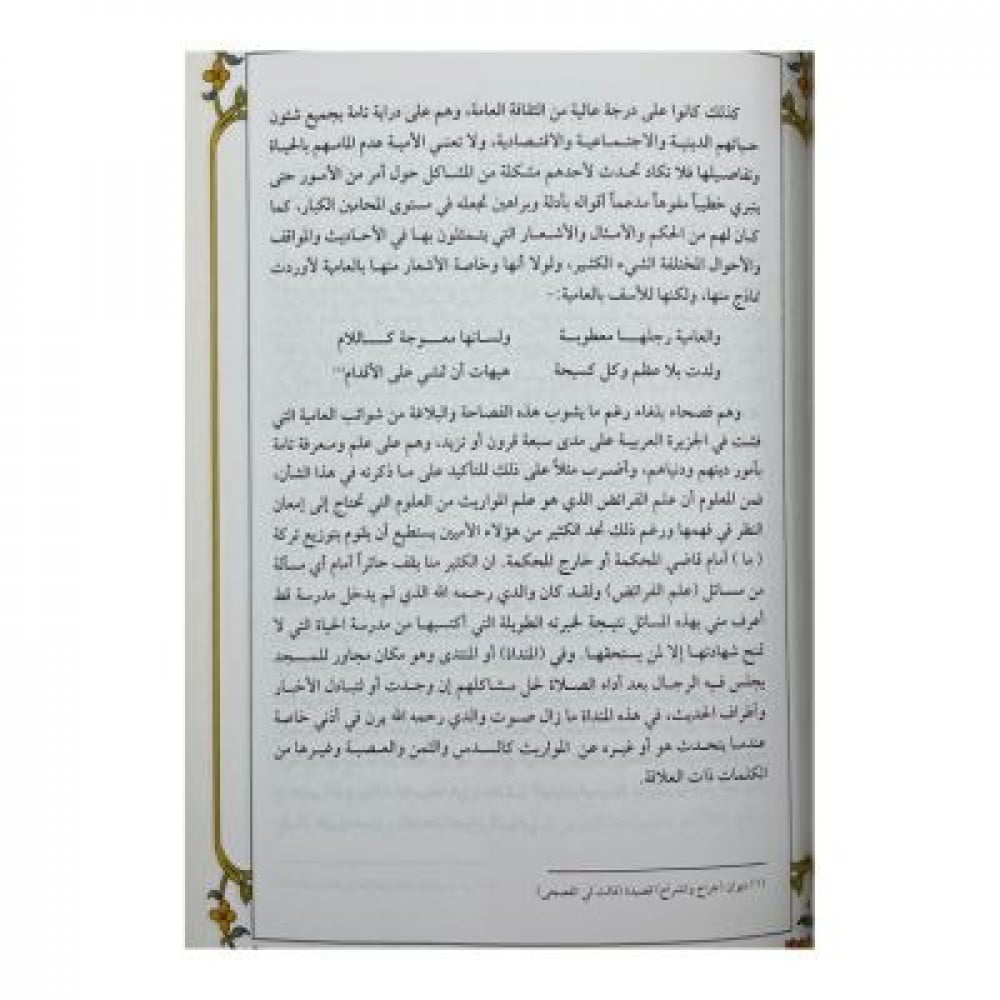 كذلك كانوا على درجة عالية من الثقافة العامة، وهم على دراية تامة بجميع شئون
حياتهم الدينية والاجتماعية والاقتصادية، ولا تعني الأمية عدم المامهم بالحياة
وتفاصيلها فلا تكاد تحدث لأحدهم مشكلة من المشاكل حول أمر من الأمور حتى
ينبري خطيباً مفوهاً مدعماً أقواله بأدلة وبراهين تجعله في مستوى المحامين الكبار، كما
كان لهم من الحكم والأمثال والأشعار التي يتمثلون بها في الأحاديث والمواقف
والأحوال المختلفة الشيء الكثير، ولولا أنها وخاصة الأشعار منها بالعامية لأوردت
نماذج منها، ولكنها للأسف بالعامية:-
والعامية رجلها معطوبة ولسانها معوجة كاللام
ولدت بلا عظم وكل كسيحة هيهات أن تمشي على الأقدام(١)
وهم فصحاء بلغاء رغم ما يشوب هذه الفصاحة والبلاغة من شوائب العامية التي
فشت في الجزيرة العربية على مدى سبعة قرون أو تزيد، وهم على علم ومعرفة تامة
بأمور دينهم ودنياهم، وأضرب مثلاً على ذلك للتأكيد على ما ذكرته في هذا الشأن،
فمن المعلوم أن علم الفرائض الذي هو علم المواريث من العلوم التي تحتاج إلى إمعان
النظر في فهمها ورغم ذلك تجد الكثير من هؤلاء الأميين يستطيع أن يقوم بتوزيع تركة
(ما) أمام قاضي المحكمة أو خارج المحكمة. ان الكثير منا يقف حائراً أمام أي مسألة
من مسائل (علم الفرائض) ولقد كان والدي رحمه الله الذي لم يدخل مدرسة قط
أعرف مني بهذه المسائل نتيجة لخبرته الطويلة التي أكتسبها من مدرسة الحياة التي لا
تمنح شهادتها إلا لمن يستحقها. وفي (المنداة) أو المنتدى وهو مكان مجاور للمسجد
يجلس فيه الرجال بعد أداء الصلاة لحل مشاكلهم إن وجدت أو لتبادل الأخبار
وأطراف الحديث، في هذه المنداة ما زال صوت والدي رحمه الله يرن في أذني خاصة
عندما يتحدث هو أو غيره عن المواريث كالسدس والثمن والعصبة وغيرها من
الكلمات ذات العلاقة.
(١) ديوان (جراح وانشراح) قصيدة (قالت لي الفصحى)